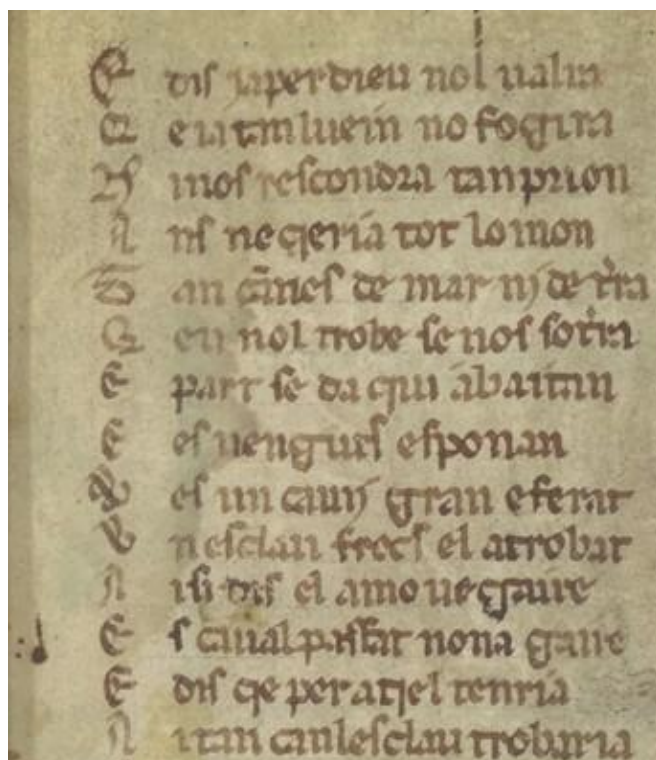 E dis ja per dieu nol ualra
Q e ia tan luein no fogira
N inos rescondra tan prion
A ns neqeria tot lo mon
T an cãmes de mar nj de tr̃ra
Q eu nol trobe se nos sotr̃ra
E part se da qui ab aitan
E es uengutz esponan
V es un camj gran e ferat
U n esclau frecs el a trobat
A isi dis el a mo uegaire
E s caual passat non a gaire
E dis qe per aqel tenria
A itan can lesclau trobaria